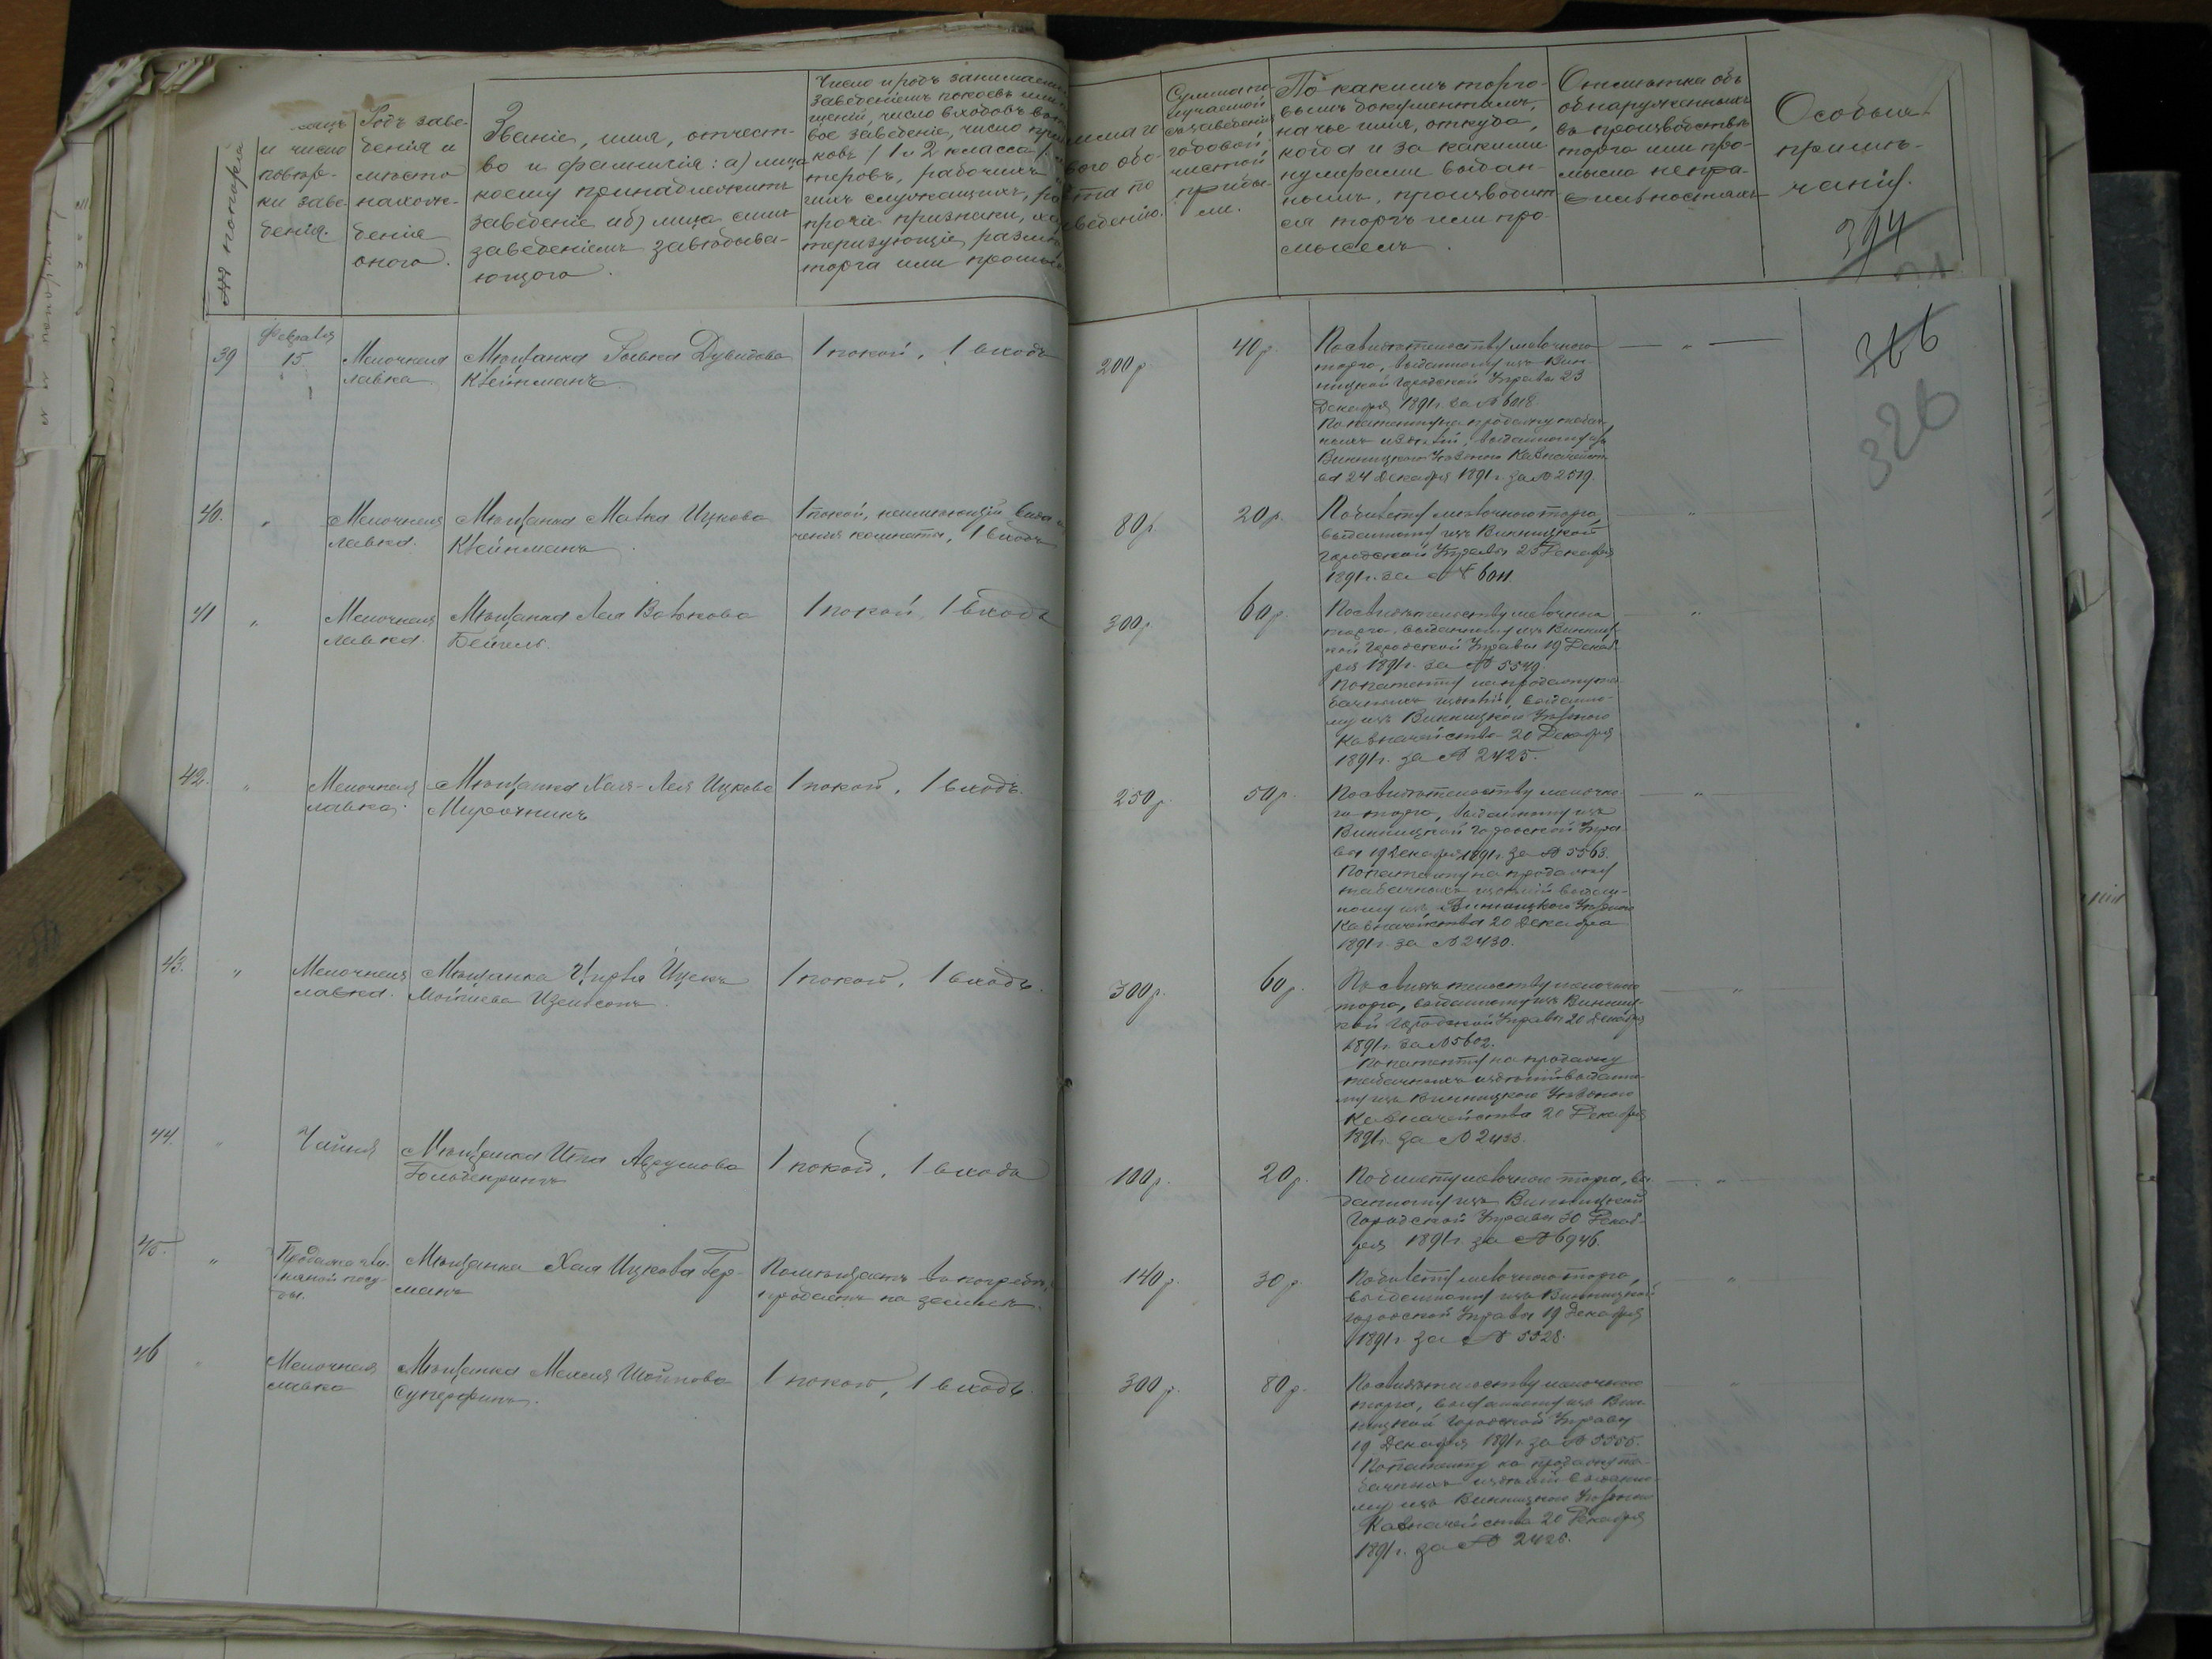 №№ по порядку
и число
повѣр-
ки заве-
денія.
Родъ заве-
денія и
мѣсто
нахож-
денія
онаго.
Званіе, имя, отчест-
во и фамилія: а) лица
коему принадлежитъ
заведеніе и б) лица симъ
заведеніемъ завѣдыва-
ющаго.
Число и родъ занимаем
заведеніемъ покоевъ или
щеній, число входовъ въ
вое заведеніе, число
ковъ (1 и 2 класса)
теровъ, рабочихъ
гихъ служащихъ,
прочіе признаки, ха
теризующіе размѣ
торга или промы
ваго обо-
та по
ведению.
Сумма по
лучаемой
заведенія
годовой
чистой
прибы-
ли.
По какимъ торго-
вымъ документамъ,
на чье имя, откуда,
когда и за какими
нумерами выдан-
нымъ, производит
ся торгъ или про-
мыселъ.
Отмѣтка объ
обнаруженныхъ
въ производствѣ
торга или про-
мысла непра-
вильностяхъ
Особыя
примѣ-
чанія.
394
366
326
39
Февраля
15
Мелочная
лавка
Мѣщанка Дувидова
Клейманъ
1 покой, 1 входъ
200 р.
40 р.
По свидѣтельству мелочного
торга, выданному изъ Вин-
ницкой Городской Управы 23
Декабря 1891 г. за № 6018.
По патенту на продажу табач-
ныхъ издѣлій, выданному изъ
Винницкаго Уѣзднаго Казначейст-
ва 24 Декабря 1891 г. за № 2519.
40.
Мелочная
лавка.
Мѣщанка Малка Ицкова
Клейнманъ
1 покой, неимѣющій вида
чения комнаты, 1 входъ
80 р.
20 р.
По билету мелочного торга,
выданному изъ Винницкой
Городской Управы 23 Декабря
1891 г. за № 6011
41
Мелочная
лавка.
Мѣщанка Лея Волькова
Бейгель.
1 покой, 1 входъ
300 р.
60 р.
По свидѣтельству мелочного
торга, выданному изъ Винниц-
кой Городской Управы 19 Декаб-
ря 1891 г. за № 5549.
По патенту на продажу та-
бачныхъ издѣлій, выданно-
му изъ Винницкаго Уѣзднаго
Казначейства 20 Декабря
1891 г. за № 2425.
42.
Мелочная
лавка.
Мѣщанка Хая-Лея Ицкова
Мирочникъ
1 покой, 1 входъ.
250 р.
50 р.
По свидѣтельству мелочно-
го торга, выданному изъ
Винницкой Городской Упра-
вы 19 Декабря 1891 г. за № 5563.
По патенту на продажу
табачныхъ издѣлій выдан-
ному изъ Винницкаго Уѣзднаго
Казначейства 20 Декабря
1891 г. за № 2430.
43.
Мелочная
лавка.
Мѣщанка Цирля Ицекъ
Мошиева Ицельсонъ.
1 покой, 1 входъ.
300 р.
60 р.
По свидѣтельству мелочного
торга, выданному изъ Винниц-
кой Городской Управы 20 Декабря
1891 г. за № 5602.
По патенту на продажу
табачныхъ издѣлій выданно-
му изъ Винницкаго Уѣзднаго
Казначейства 20 Декабря
1891 г. за № 2433.
44.
Чайная
Мѣщанка Ита Абрумова
1 покой, 1 входъ
100 р.
20 р.
По билету мелочного торга, вы-
данному изъ Винницкой
Городской Управы 30 Декаб-
ря 1891 г. за № 6946.
45.
Продажа гли-
няной посу-
ды.
Мѣщанка Хая Ицкова Гер-
манъ
Помѣщаетъ въ погребѣ,
продаетъ на землѣ.
140 р.
30 р.
По билету мелочного торга,
выданному изъ Винницкой
Городской Управы 19 Декабря
1891 г. за № 5528.
46
Мелочная
лавка
Мѣщанка Малия Шойлова
Суперфинъ.
1 покой, 1 входъ.
300 р.
80 р.
По свидѣтельству мелочного
торга, выданному изъ Вин-
ницкой Городской Управы
19 Декабря 1891 г. за № 5555.
По патенту на продажу та-
бачныхъ издѣлій выданно-
му изъ Винницкаго Уѣзднаго
Казначейства 20 Декабря
1891 г. за № 2426.